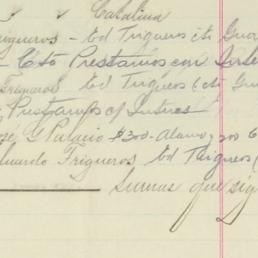 Catalina
rigueros - Ed Trigueros cta Gua
- Cta Prestamos con Inte
Trigueros Ed Trigueros (cta Gu
Prestamos c/ Interes
José G Palacio $300- Alamo y 200 C
duardo Trigueros Ed Trigueros (
Sumas que sig